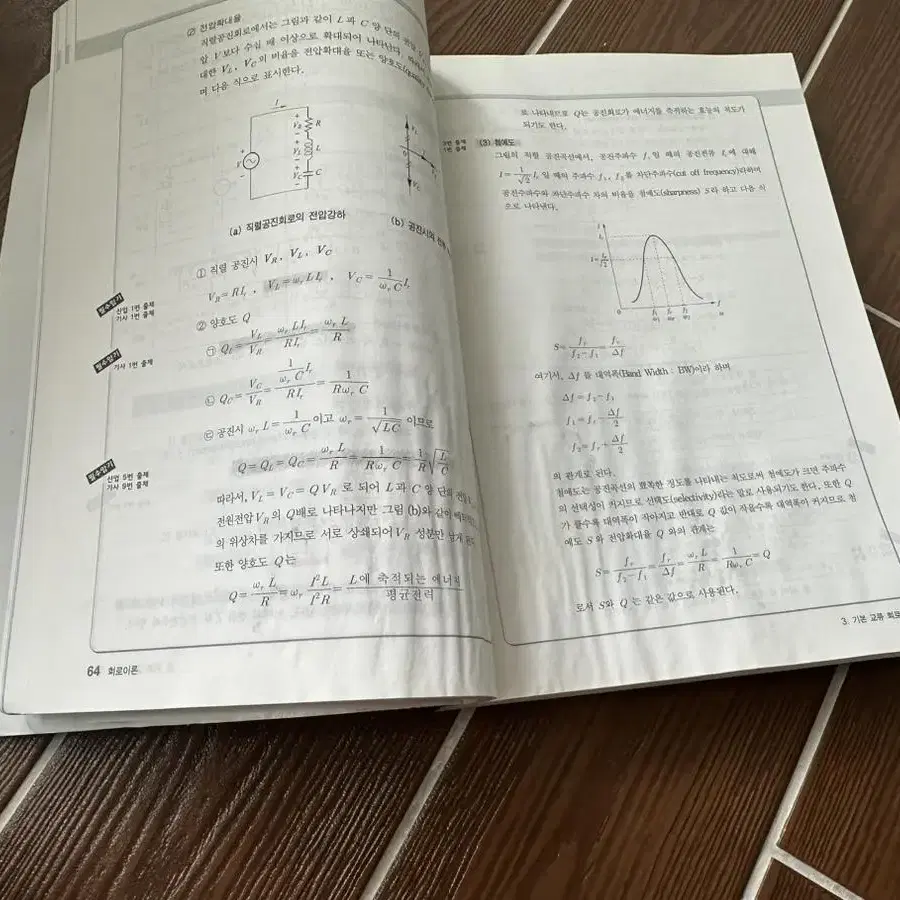 ② 전압확대율
직렬공진회로에서는 그림과 같이 L과 C 양 단의
압 V보다 수십 배 이상으로 확대되어 나타난다.
대한 V_L, V_C의 비율을 전압확대율 또는 양호도
며 다음 식으로 표시한다.
I
+ V_R − R
+ V + V_L − L
− + V_C − C
0
(a) 직렬공진회로의 전압강하
(b) 공진시의
① 직렬 공진시 V_R, V_L, V_C
V_R = RI_r, V_L = ω_r L I_r, V_C = 1/(ω_r C) I_r
필수암기 산업 1번 출제
기사 1번 출제
② 양호도 Q
㉠ Q_L = V_L/V_R = ω_r L I_r/RI_r = ω_r L/R
필수암기 기사 1번 출제
㉡ Q_C = V_C/V_R = (1/(ω_r C) I_r)/RI_r = 1/(Rω_r C)
㉢ 공진시 ω_r L = 1/(ω_r C) 이고 ω_r = 1/√(LC) 이므로
필수암기 산업 5번 출제
기사 9번 출제
Q = Q_L = Q_C = ω_r L/R = 1/(Rω_r C) = 1/R √(L/C)
따라서, V_L = V_C = QV_R 로 되어 L과 C 양 단의
전원전압 V_R의 Q배로 나타나지만 그림 (b)와 같이
의 위상차를 가지므로 서로 상쇄되어 V_R 성분만 남게
또한 양호도 Q는
Q = ω_r L/R = ω_r I²L/I²R = L에 축적되는 에너지/평균전력
64 회로이론
로 나타내므로 Q는 공진회로가 에너지를 축적하는 효능의 척도가
되기도 한다.
(3) 첨예도
그림의 직렬 공진곡선에서, 공진주파수 f_r일 때의 공진전류 I_r에 대해
I = 1/√2 I_r일 때의 주파수 f₁, f₂를 차단주파수(cut off frequency)라하며
공진주파수와 차단주파수 차의 비율을 첨예도(sharpness) S라 하고 다음 식
으로 나타낸다.
I
I_r
I = I_r/√2
0 f₁ f_r f₂ f
ω₁ ω_r ω₂ ω
S = f_r/(f₂−f₁) = f_r/Δf
여기서, Δf를 대역폭(Band Width : BW)이라 하며
Δf = f₂ − f₁
f₁ = f_r − Δf/2
f₂ = f_r + Δf/2
의 관계로 된다.
첨예도는 공진곡선의 뾰족한 정도를 나타내는 척도로써 첨예도가 크면 주파수
의 선택성이 커지므로 선택도(selectivity)라는 말로 사용되기도 한다. 또한 Q
가 클수록 대역폭이 작아지고 반대로 Q 값이 작을수록 대역폭이 커지므로 첨
예도 S와 전압확대율 Q와의 관계는
S = f_r/(f₂−f₁) = f_r/Δf = ω_r L/R = 1/(Rω_r C) = Q
로서 S와 Q는 같은 값으로 사용된다.
3. 기본 교류 회로